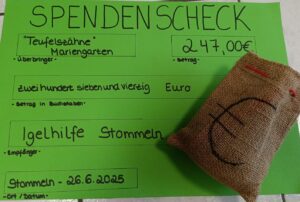 SPENDENSCHECK
"Teufelszähne" 247,00€
Mariengarten
- Überbringer - - Betrag -
zwei hundert sieben und vierzig Euro
- Betrag in Buchstaben -
Igelhilfe Stommeln
- Empfänger -
Stommeln - 26.6.2025
- Ort / Datum -
€